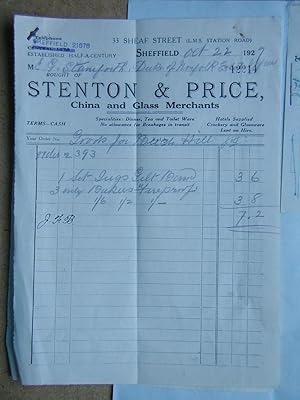 Telephone
SHEFFIELD 21076
33 SHEAF STREET (L.M.S. STATION ROAD)
ESTABLISHED HALF-A-CENTURY
SHEFFIELD Oct 22 1927
M Duke of Norfolk
BOUGHT OF
STENTON & PRICE,
China and Glass Merchants
Specialities: Dinner, Tea and Toilet Ware
No allowance for Breakages in transit
TERMS—CASH
Hotels Supplied
Crockery and Glassware
Lent on Hire.
Your Order No.
Goods for
Order 2393
1 Set Jugs Gilt Band 3 6
3 only Bakers Fireproof
1/6 1/2 1/- 3 8
7. 2